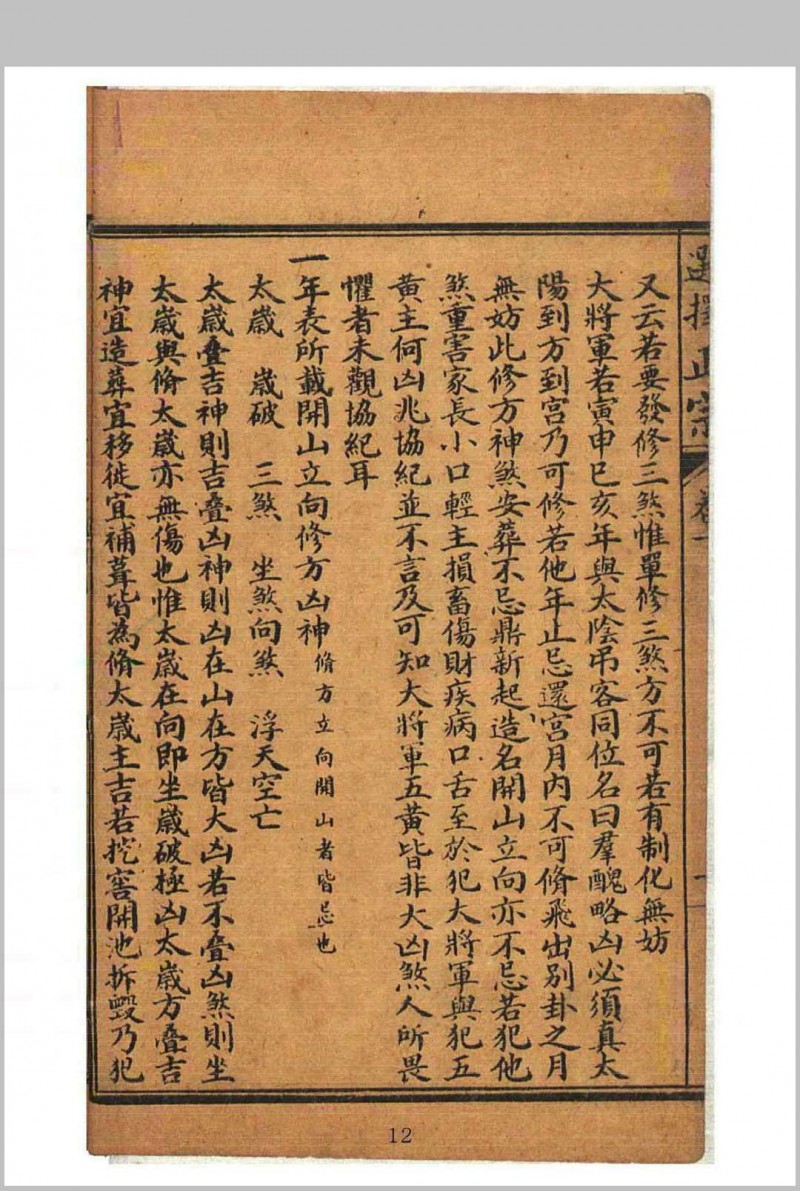 選擇正宗
又云若要發修三煞惟單修三煞方不可若有制化無妨
大將軍若寅申巳亥年與太陰弔客同位名曰羣醜略凶必須真太
陽到方到宮乃可修若他年止忌還宮月內不可脩飛出別卦之月
無妨此修方神煞安葬不忌鼎新起造名開山立向亦不忌若犯他
煞重害家長小口輕主損畜傷財疾病口舌至於犯大將軍與犯五
黃主何凶兆協紀並不言及可知大將軍五黃皆非大凶煞人所畏
懼者未觀協紀耳
一年表所載開山立向修方凶神脩方立向開山者皆忌也
太歲 歲破 三煞 坐煞向煞 浮天空亡
太歲疊吉神則吉疊凶神則凶在山在方皆大凶若不疊凶煞則坐
太歲與脩太歲亦無傷也惟太歲在向即坐歲破極凶太歲方疊吉
神宜造葬宜移徙宜補葺皆為脩太歲主吉若挖窖開池拆毀乃犯
12